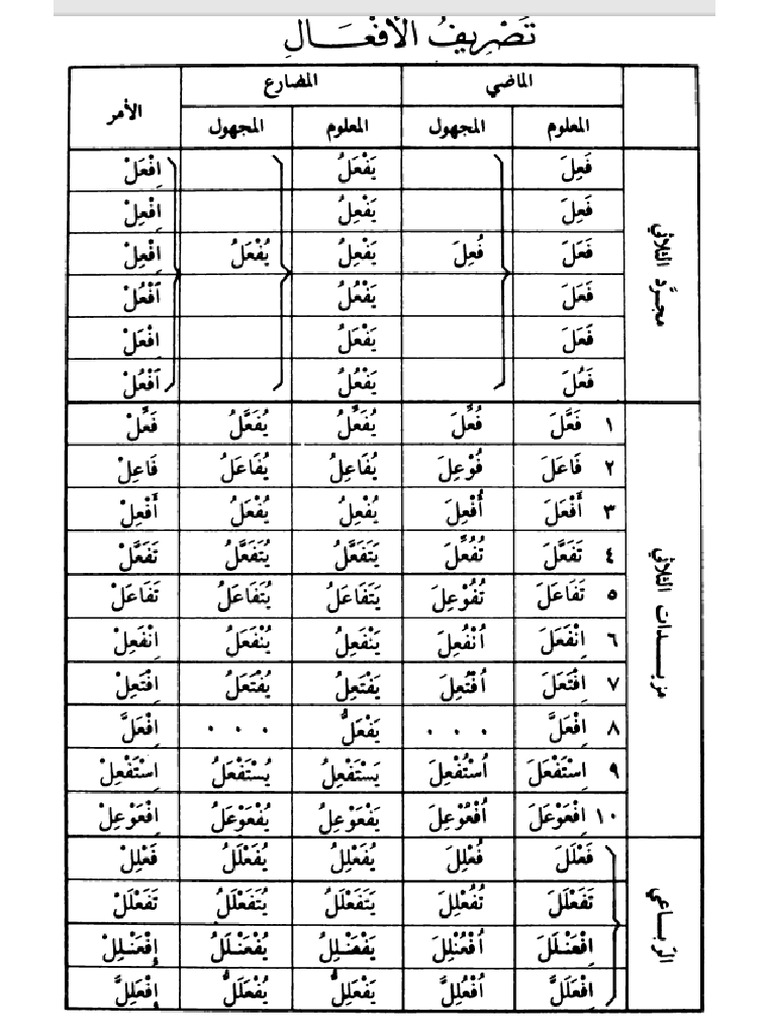 تَصْرِيفُ الْأَفْعَالِ
الماضي المضارع الأمر
المعلوم المجهول المعلوم المجهول
مجرَّد الثلاثي
فَعِلَ يَفْعَلُ اِفْعَلْ
فَعِلَ يَفْعِلُ اِفْعِلْ
فَعَلَ فُعِلَ يَفْعِلُ يُفْعَلُ اِفْعِلْ
فَعَلَ يَفْعُلُ اُفْعُلْ
فَعَلَ يَفْعَلُ اِفْعَلْ
فَعُلَ يَفْعُلُ اُفْعُلْ
مزيدات الثلاثي
١ فَعَّلَ فُعِّلَ يُفَعِّلُ يُفَعَّلُ فَعِّلْ
٢ فَاعَلَ فُوْعِلَ يُفَاعِلُ يُفَاعَلُ فَاعِلْ
٣ أَفْعَلَ أُفْعِلَ يُفْعِلُ يُفْعَلُ أَفْعِلْ
٤ تَفَعَّلَ تُفُعِّلَ يَتَفَعَّلُ يُتَفَعَّلُ تَفَعَّلْ
٥ تَفَاعَلَ تُفُوْعِلَ يَتَفَاعَلُ يُتَفَاعَلُ تَفَاعَلْ
٦ اِنْفَعَلَ اُنْفُعِلَ يَنْفَعِلُ يُنْفَعَلُ اِنْفَعِلْ
٧ اِفْتَعَلَ اُفْتُعِلَ يَفْتَعِلُ يُفْتَعَلُ اِفْتَعِلْ
٨ اِفْعَلَّ . . . يَفْعَلُّ . . . اِفْعَلَّ
٩ اِسْتَفْعَلَ اُسْتُفْعِلَ يَسْتَفْعِلُ يُسْتَفْعَلُ اِسْتَفْعِلْ
١٠ اِفْعَوْعَلَ اُفْعُوْعِلَ يَفْعَوْعِلُ يُفْعَوْعَلُ اِفْعَوْعِلْ
الرباعي
فَعْلَلَ فُعْلِلَ يُفَعْلِلُ يُفَعْلَلُ فَعْلِلْ
تَفَعْلَلَ تُفُعْلِلَ يَتَفَعْلَلُ يُتَفَعْلَلُ تَفَعْلَلْ
اِفْعَنْلَلَ اُفْعُنْلِلَ يَفْعَنْلِلُ يُفْعَنْلَلُ اِفْعَنْلِلْ
اِفْعَلَلَّ اُفْعُلِلَّ يَفْعَلِلُّ يُفْعَلَلُّ اِفْعَلِلَّ